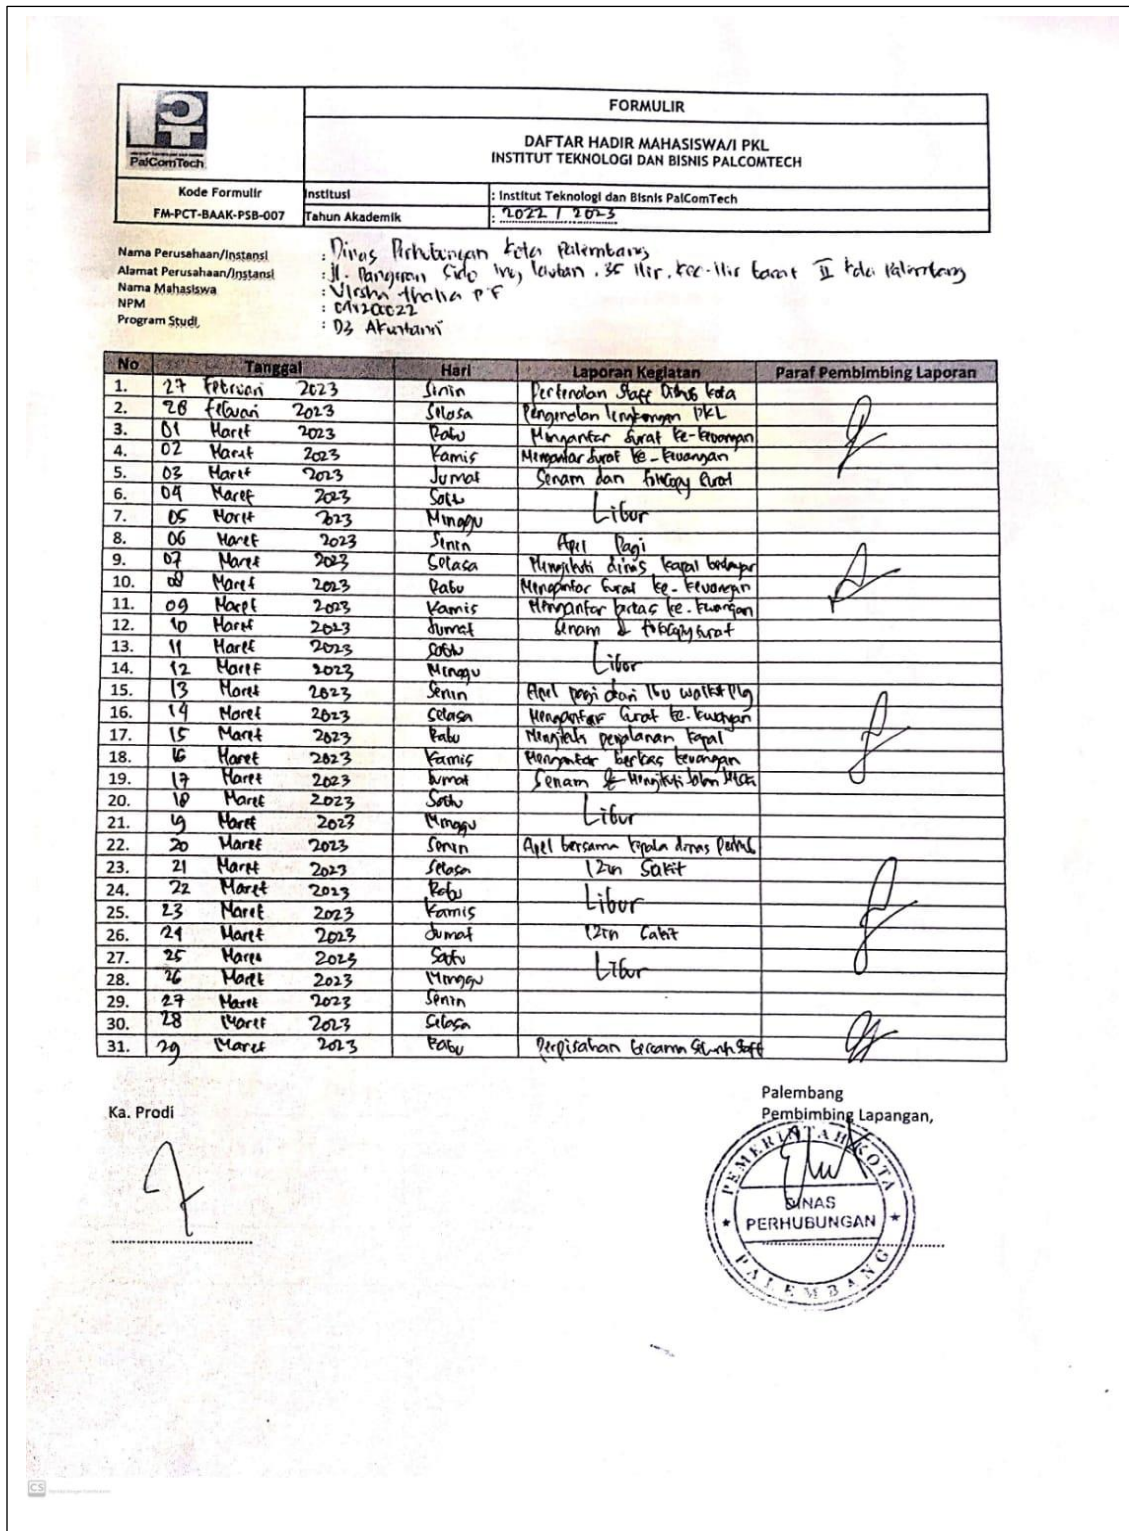 PalComTech
FORMULIR
DAFTAR HADIR MAHASISWA/I PKL
INSTITUT TEKNOLOGI DAN BISNIS PALCOMTECH
Kode Formulir
FM-PCT-BAAK-PSB-007
Institusi : Institut Teknologi dan Bisnis PalComTech
Tahun Akademik : 2022 / 2023
Nama Perusahaan/Instansi : Dinas Perhubungan Kota Palembang
Alamat Perusahaan/Instansi : Jl. Pangeran Sido Ing Lautan . 35 Ilir . Kec-Ilir barat II Kota Palembang
Nama Mahasiswa : Thalia P F
NPM :
Program Studi : D3 Akuntansi
No Tanggal Hari Laporan Kegiatan Paraf Pembimbing Laporan
1. 27 Februari 2023 Senin Staff Dishub kota
2. 28 Februari 2023 Selasa Pengenalan lingkungan PKL
3. 01 Maret 2023 Rabu Mengantar Surat ke-keuangan
4. 02 Maret 2023 Kamis Mengantar Surat ke-keuangan
5. 03 Maret 2023 Jumat Senam dan fotocopy surat
6. 04 Maret 2023 Sabtu
Libur
7. 05 Maret 2023 Minggu
8. 06 Maret 2023 Senin Apel Pagi
9. 07 Maret 2023 Selasa Mengikuti dinas kapal
10. 08 Maret 2023 Rabu Mengantar Surat ke-keuangan
11. 09 Maret 2023 Kamis Mengantar ke-keuangan
12. 10 Maret 2023 Jumat Senam & fotocopy surat
13. 11 Maret 2023 Sabtu
Libur
14. 12 Maret 2023 Minggu
15. 13 Maret 2023 Senin Apel pagi dari Ibu
16. 14 Maret 2023 Selasa Mengantar Surat ke-keuangan
17. 15 Maret 2023 Rabu Mengikuti perjalanan kapal
18. 16 Maret 2023 Kamis Mengantar berkas keuangan
19. 17 Maret 2023 Jumat Senam & Mengikuti Jalan
20. 18 Maret 2023 Sabtu
Libur
21. 19 Maret 2023 Minggu
22. 20 Maret 2023 Senin Apel bersama kepala dinas
23. 21 Maret 2023 Selasa Izin Sakit
24. 22 Maret 2023 Rabu
Libur
25. 23 Maret 2023 Kamis
26. 24 Maret 2023 Jumat Izin Sakit
27. 25 Maret 2023 Sabtu
Libur
28. 26 Maret 2023 Minggu
29. 27 Maret 2023 Senin
30. 28 Maret 2023 Selasa
31. 29 Maret 2023 Rabu Perpisahan bersama Seluruh Staff
Palembang
Ka. Prodi
Pembimbing Lapangan,
PEMERINTAH KOTA
DINAS
PERHUBUNGAN
PALEMBANG
CS